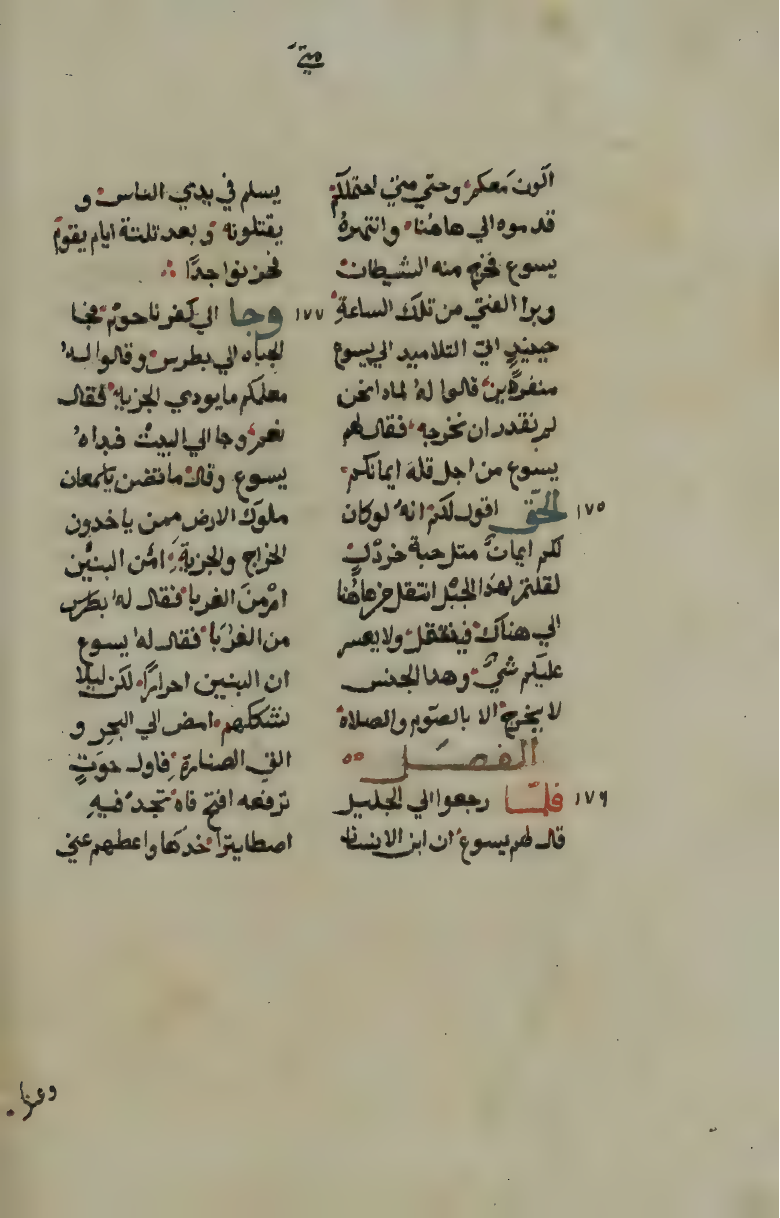 متي
اكون معكم وحتي متي احتملكم
قدموه الي هاهنا وانتهره
يسوع فخرج منه الشيطان
وبرا الفتي من تلك الساعة
حينيد اتي التلاميد الي يسوع
منفردين قالوا له لمادا نحن
لم نقدر ان نخرجه فقال لهم
يسوع من اجل قلة ايمانكم
١٧٥ الحق اقول لكم انه لو كان
لكم ايمان متل حبة خردل
لقلتم لهدا الجبل انتقل من هاهنا
الي هناك فينتقل ولا يعسر
عليكم شي وهدا الجنس
لا يخرج الا بالصوم والصلاة
الفصل ٥٥
١٧٦ فلما رجعوا الي الجليل
قال لهم يسوع ان ابن الانسان
يسلم في يدي الناس و
يقتلونه وبعد تلتة ايام يقوم
فحزنوا جدا
١٧٧ وجا الي كفرناحوم فجا
الجباه الي بطرس وقالوا له
معلمكم ما يودي الجزية فقال
نعم وجا الي البيت فبداه
يسوع وقال ما تضن يا سمعان
ملوك الارض ممن ياخدون
الخراج والجزية امن البنين
ام من الغربا فقال له بطرس
من الغربا فقال له يسوع
ان البنين احرارا لكن ليلا
نشككهم امض الي البحر و
الق الصنارة فاول حوت
ترفعه افتح فاه تجد فيه
اصطاتيرا خدها واعطهم عني
وعنا